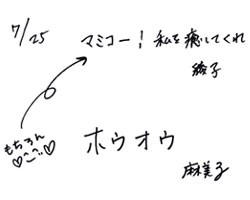 7/25
マミコー！私を癒してくれ
綾子
もちろん
♡こご♡
ホウオウ
麻美子